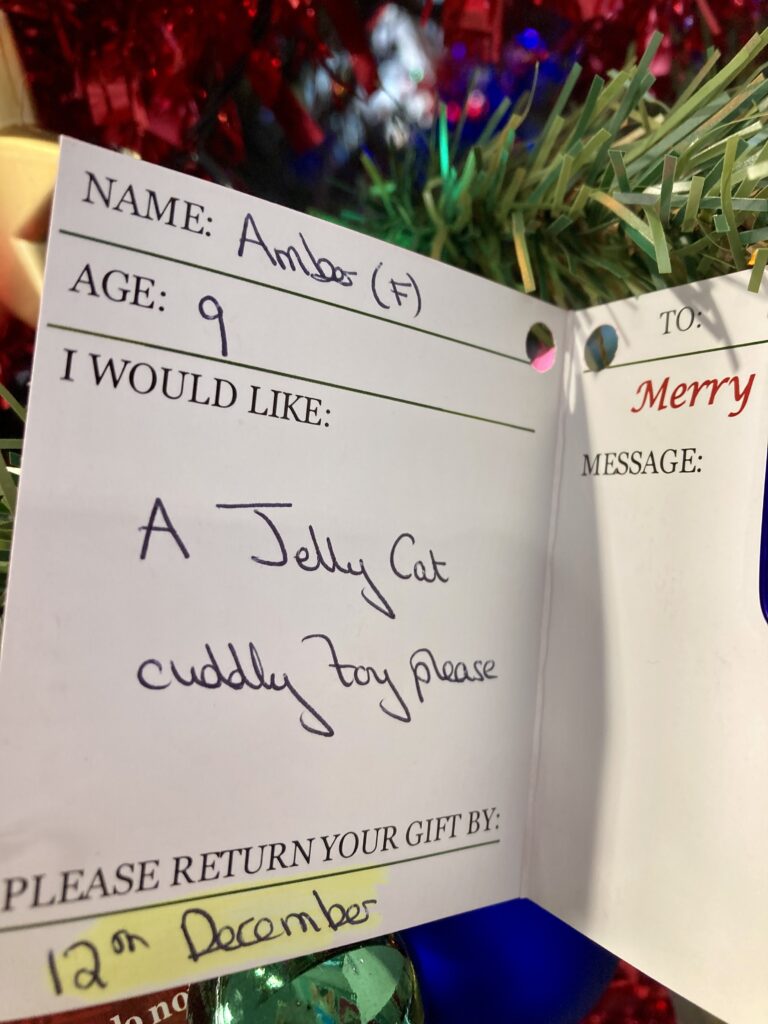 NAME: Amber (F)
AGE: 9
I WOULD LIKE:
A Jelly Cat
cuddly toy please
PLEASE RETURN YOUR GIFT BY:
12th December
TO:
Merry
MESSAGE:
do no